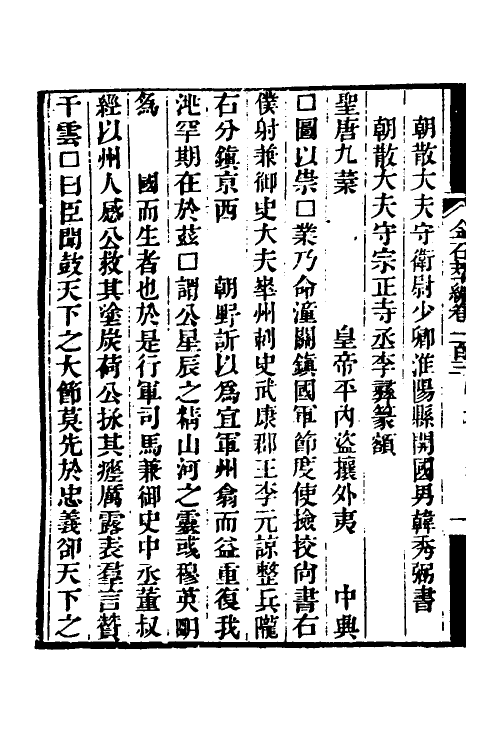 朝散大夫守衛尉少卿淮陽縣開國男韓秀弼書
朝散大夫守宗正寺丞李彝篆額
聖唐九葉　皇帝平內盜攘外夷　中興
囗圖以崇囗業乃命潼關鎮國軍節度使撿挍尚書右
僕射兼御史大夫華州刺史武康郡王李元諒整兵隴
右分鎮京西　朝野訢以爲宜軍州翕而益重復我
洮罕期在於茲囗謂公星辰之精山河之靈或穆英明
爲　國而生者也於是行軍司馬兼御史中丞董叔
經以州人感公救其塗炭荷公拯其瘞厲露表羣言贊
干雲囗曰臣聞鼓天下之大節莫先於忠義卻天下之
金石萃編卷一百三